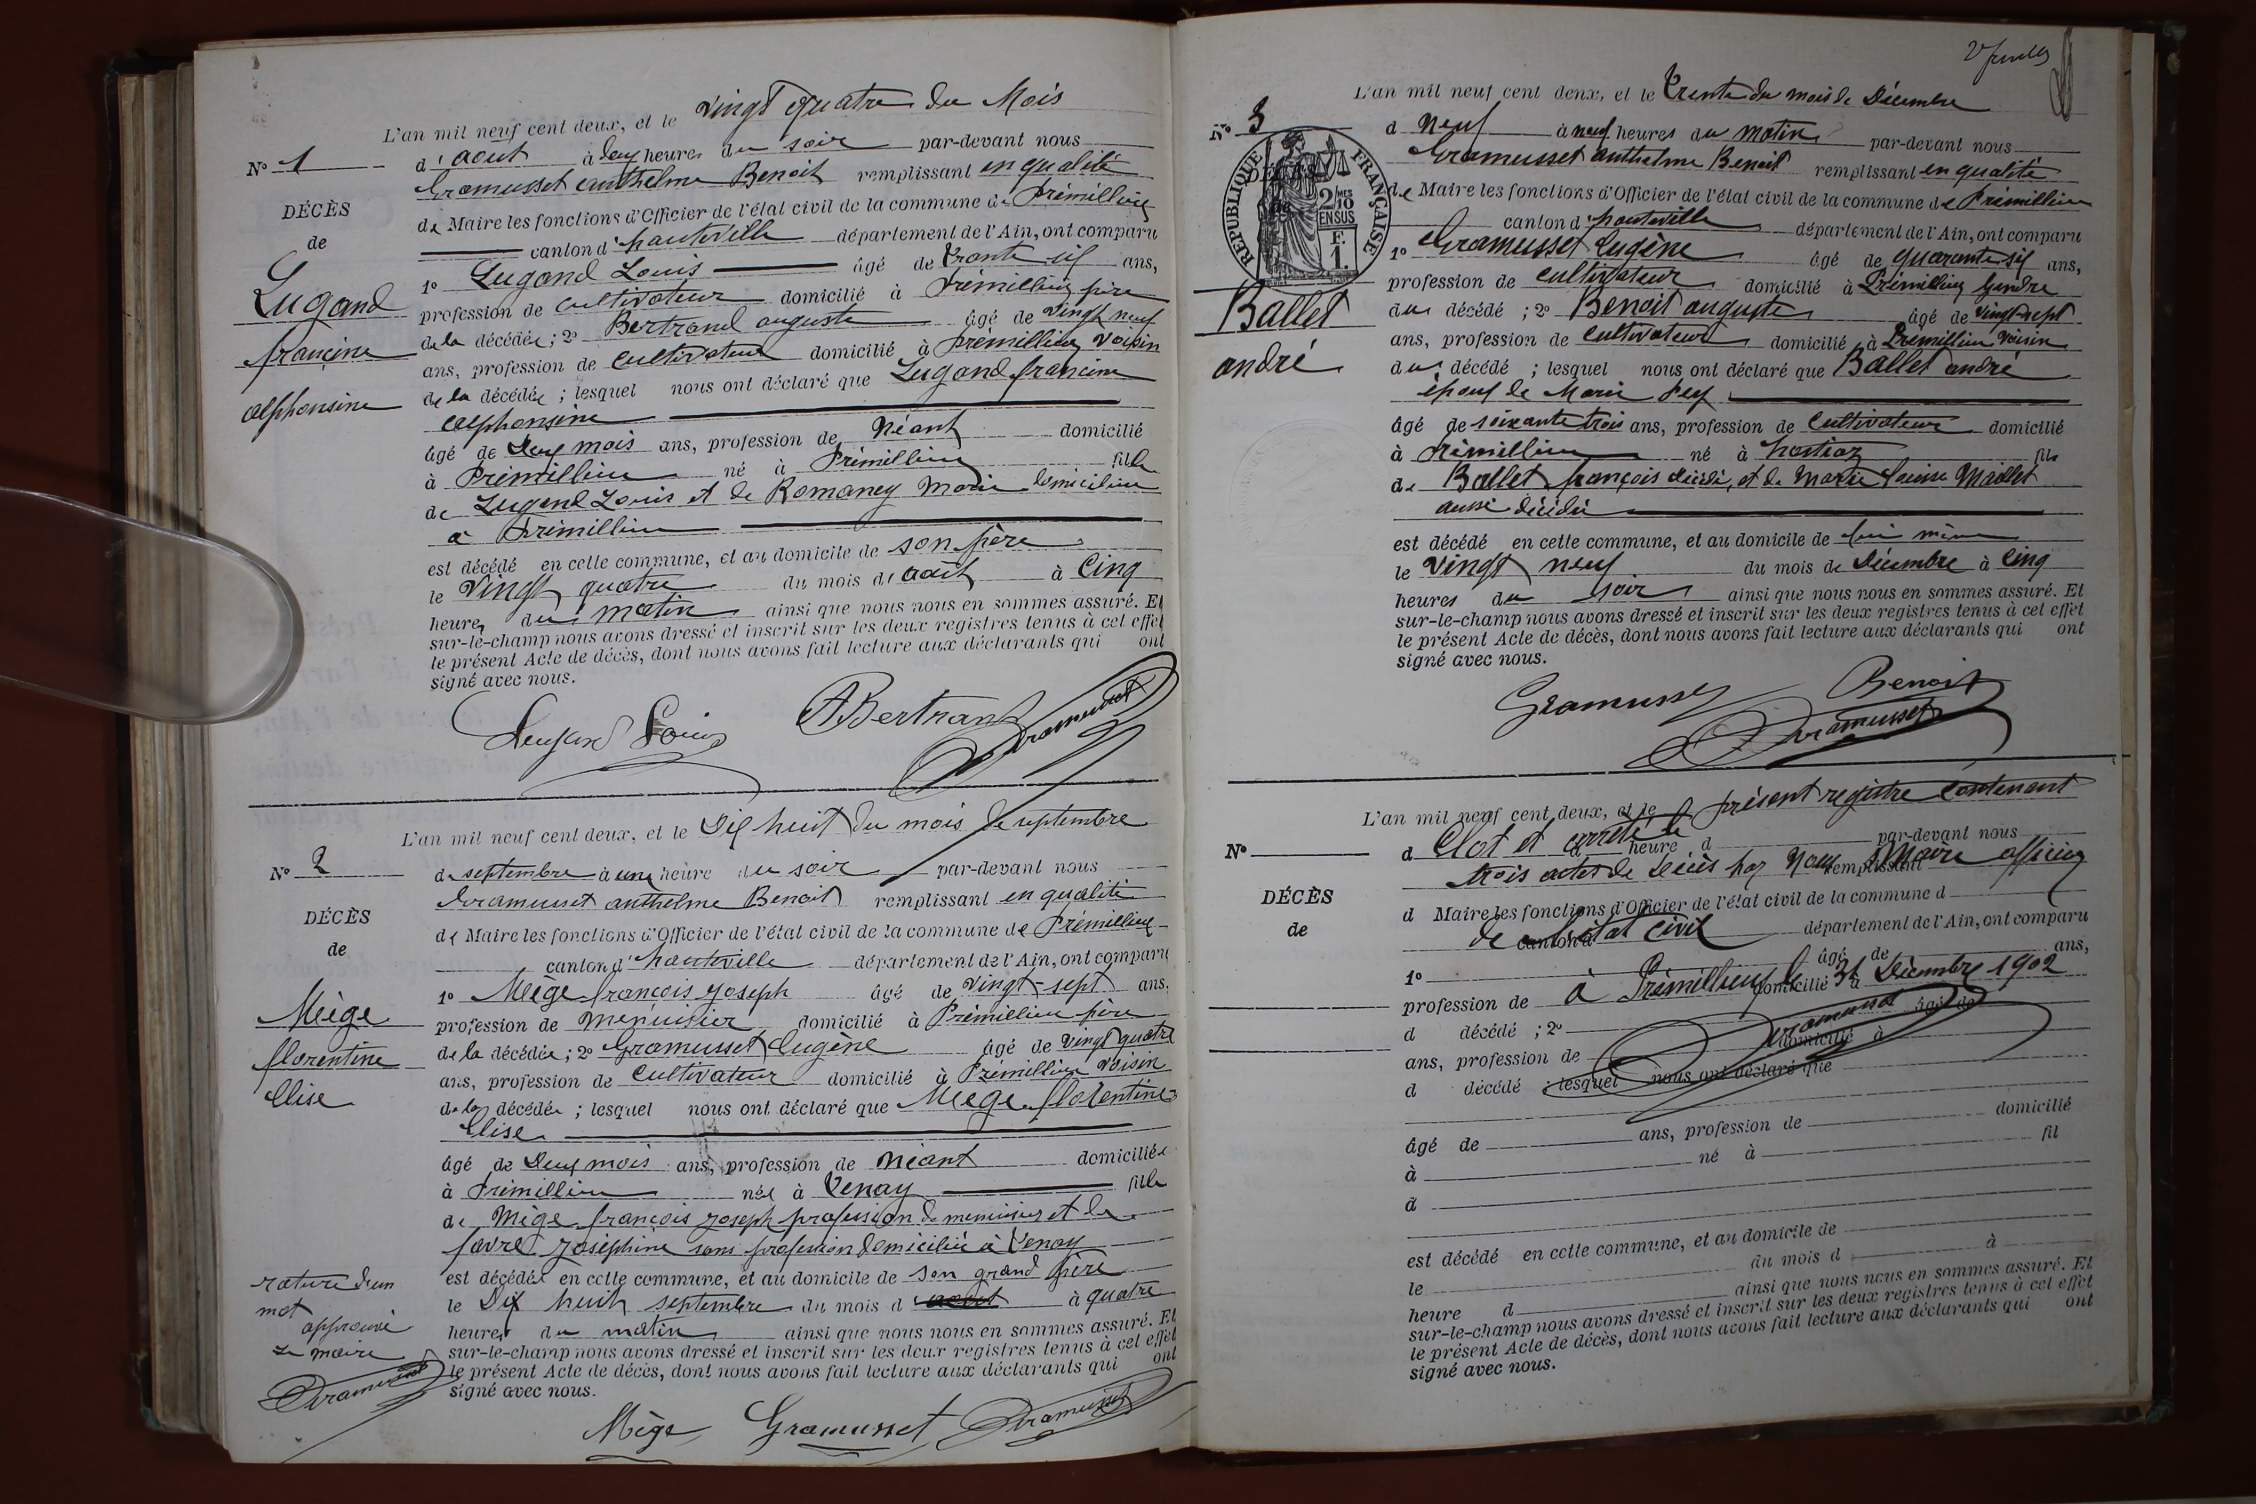 L'an mil neuf cent deux, et le vingt quatre du Mois
N° 1
d'aout à deux heures du soir par-devant nous
Gramusset anthelme Benoit remplissant en qualité
DÉCÈS
de Maire les fonctions d'Officier de l'état civil de la commune de Prémillieu
de
canton d'hauteville département de l'Ain, ont comparu
Lugand
1° Lugand Louis âgé de trente six ans,
profession de cultivateur domicilié à Prémillieu père
françine
de la décédée ; 2° Bertrand auguste âgé de vingt neuf
ans, profession de cultivateur domicilié à Prémillieu voisin
alphonsine
de la décédée ; lesquel nous ont déclaré que Lugand francine
alphonsine
âgé de Deux mois ans, profession de Néant domicilié
à Prémillieu né à Prémillieu fille
de Lugand Louis et de Romaney Marie domiciliés
à Prémillieu
est décédé en cette commune, et au domicile de son père
le vingt quatre du mois d'août à Cinq
heures du matin ainsi que nous nous en sommes assuré. Et
sur-le-champ nous avons dressé et inscrit sur les deux registres tenus à cet effet
le présent Acte de décès, dont nous avons fait lecture aux déclarants qui ont
signé avec nous.
Lugand Louis ABertrand Gramusset
L'an mil neuf cent deux, et le Dix huit du mois de septembre
N° 2
de septembre à une heure du soir par-devant nous
Gramusset anthelme Benoit remplissant en qualité
DÉCÈS
de Maire les fonctions d'Officier de l'état civil de la commune de Prémillieu
de
canton d'hauteville département de l'Ain, ont comparu
Mège
1° Mège françois joseph âgé de vingt-sept ans,
profession de menuisier domicilié à Prémillieu père
florentine
de la décédée ; 2° Gramusset Eugène âgé de vingt quatre
ans, profession de cultivateur domicilié à Prémillieu voisin
Elise
de la décédée ; lesquel nous ont déclaré que Mège florentine
Elise
âgé de Deux mois ans, profession de Néant domiciliée
à Prémillieu née à Venay fille
de Mège françois joseph profession de menuisier et de
favre joséphine sans profession domiciliés à Venay
est décédée en cette commune, et au domicile de son grand père
le Dix huit septembre du mois d'août à quatre
heures du matin ainsi que nous nous en sommes assuré. Et
sur-le-champ nous avons dressé et inscrit sur les deux registres tenus à cet effet
le présent Acte de décès, dont nous avons fait lecture aux déclarants qui ont
signé avec nous.
rature d'un
mot
approuvé
Le maire
Gramusset
Mège Gramusset Gramusset
L'an mil neuf cent deux, et le trente du mois de Décembre
N° 3
d Neuf à neuf heures du matin par-devant nous
Gramusset anthelme Benoit remplissant en qualité
DÉCÈS
de
RÉPUBLIQUE FRANÇAISE
2/10 EN SUS
F. 1.
de Maire les fonctions d'Officier de l'état civil de la commune de Prémillieu
canton d'hauteville département de l'Ain, ont comparu
1° Gramusset Eugène âgé de quarante six ans,
profession de cultivateur domicilié à Prémillieu Gendre
Ballet
du décédé ; 2° Benoit auguste âgé de vingt-sept
ans, profession de cultivateur domicilié à Prémillieu voisin
andré
du décédé ; lesquel nous ont déclaré que Ballet andré
époux de Marie Pey
âgé de soixante trois ans, profession de cultivateur domicilié
à Prémillieu né à hostiaz fils
de Ballet françois décédé, et de Marie Louise Maillet
aussi décédée
est décédé en cette commune, et au domicile de lui même
le vingt neuf du mois de Décembre à cinq
heures du soir ainsi que nous nous en sommes assuré. Et
sur-le-champ nous avons dressé et inscrit sur les deux registres tenus à cet effet
le présent Acte de décès, dont nous avons fait lecture aux déclarants qui ont
signé avec nous.
Gramusset Benoit
Gramusset
L'an mil neuf cent deux, et le présent registre contenant
N° d Clot et arrêté le à heure d par-devant nous
trois actes de décès par Nous Maire officier remplissant
DÉCÈS
d Maire les fonctions d'Officier de l'état civil de la commune d
de
de l'état civil canton d département de l'Ain, ont comparu
1° âgé de ans,
profession de à Prémillieu le 31 Décembre 1902 domicilié à
d décédé ; 2° Gramusset âgé de
ans, profession de domicilié à
d décédé ; lesquel nous ont déclaré que
âgé de ans, profession de domicilié
à né à fil
d
est décédé en cette commune, et au domicile de
le du mois d à
heure d ainsi que nous nous en sommes assuré. Et
sur-le-champ nous avons dressé et inscrit sur les deux registres tenus à cet effet
le présent Acte de décès, dont nous avons fait lecture aux déclarants qui ont
signé avec nous.